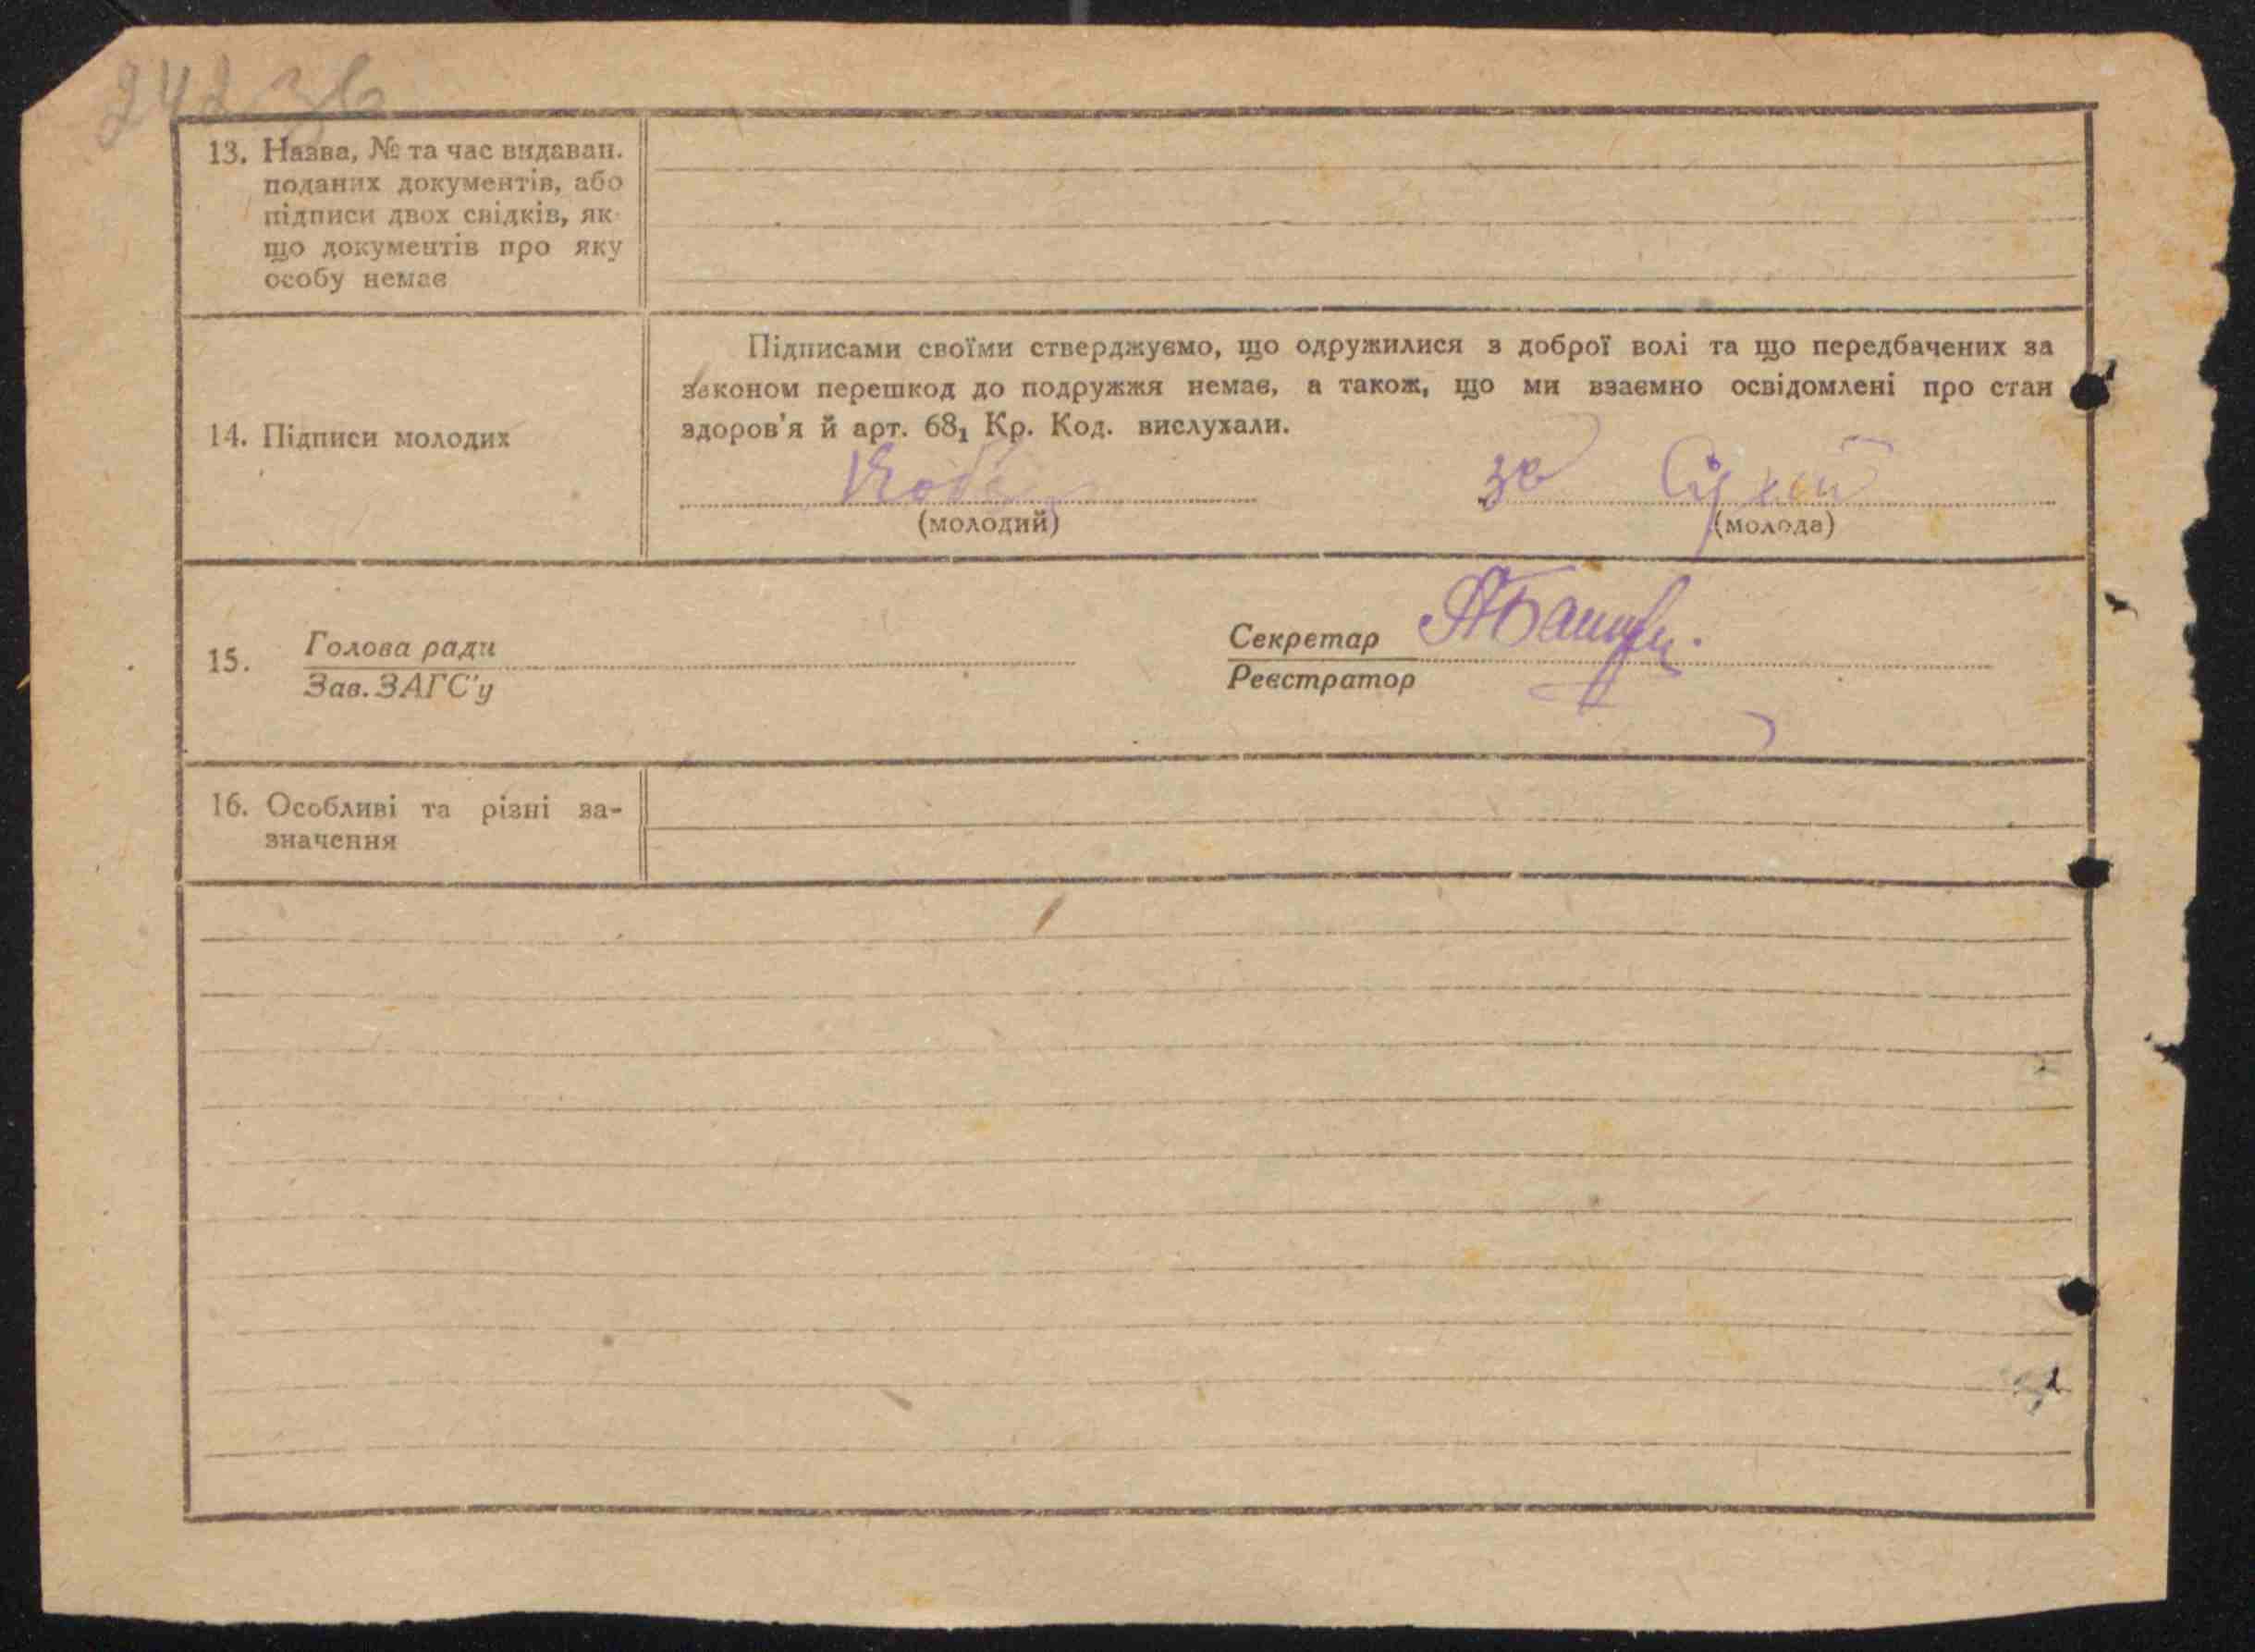 242 зв
13. Назва, № та час видаван.
поданих документів, або
підписи двох свідків, як
що документів про яку
особу немає
Підписами своїми стверджуємо, що одружилися з доброї волі та що передбачених за
законом перешкод до подружжя немає, а також, що ми взаємно освідомлені про стан
здоров'я й арт. 68₁ Кр. Код. вислухали.
14. Підписи молодих
за Сухий
(молодий) (молода)
15. Голова ради
Зав. ЗАГС'у
Секретар
Реєстратор
16. Особливі та різні за-
значення